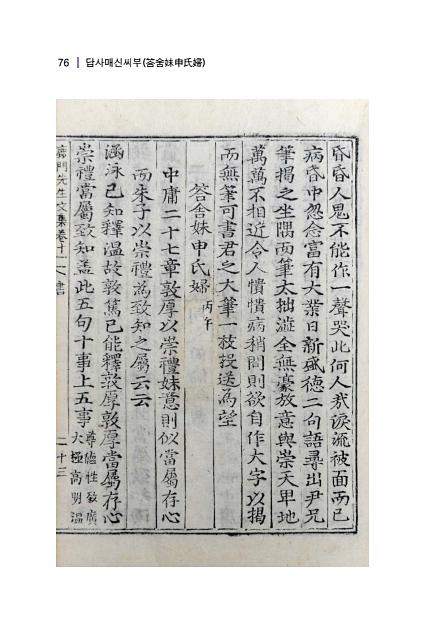 76 | 답사매신씨부(答舍妹申氏婦)
昏昏人鬼不能作一聲哭此何人哉淚流被面而已
病昏中忽念富有大業日新盛德二句語尋出尹兄
筆揭之坐隅而筆大拙澁全無豪放意與崇天卑地
萬萬不相近令人憒憒病稍間則欲自作大字以揭
而無筆可書君之大筆一枝投送為望
答舍妹申氏婦 丙午
中庸二十七章敦厚以崇禮妹意則似當屬存心
而朱子以崇禮為致知之屬云云
涵泳已知釋溫故敦篤已能釋敦厚敦厚當屬存心
崇禮當屬致知盖此五句十事上五事 尊德性致廣大極高明溫
門先生文集卷十 書 二十三